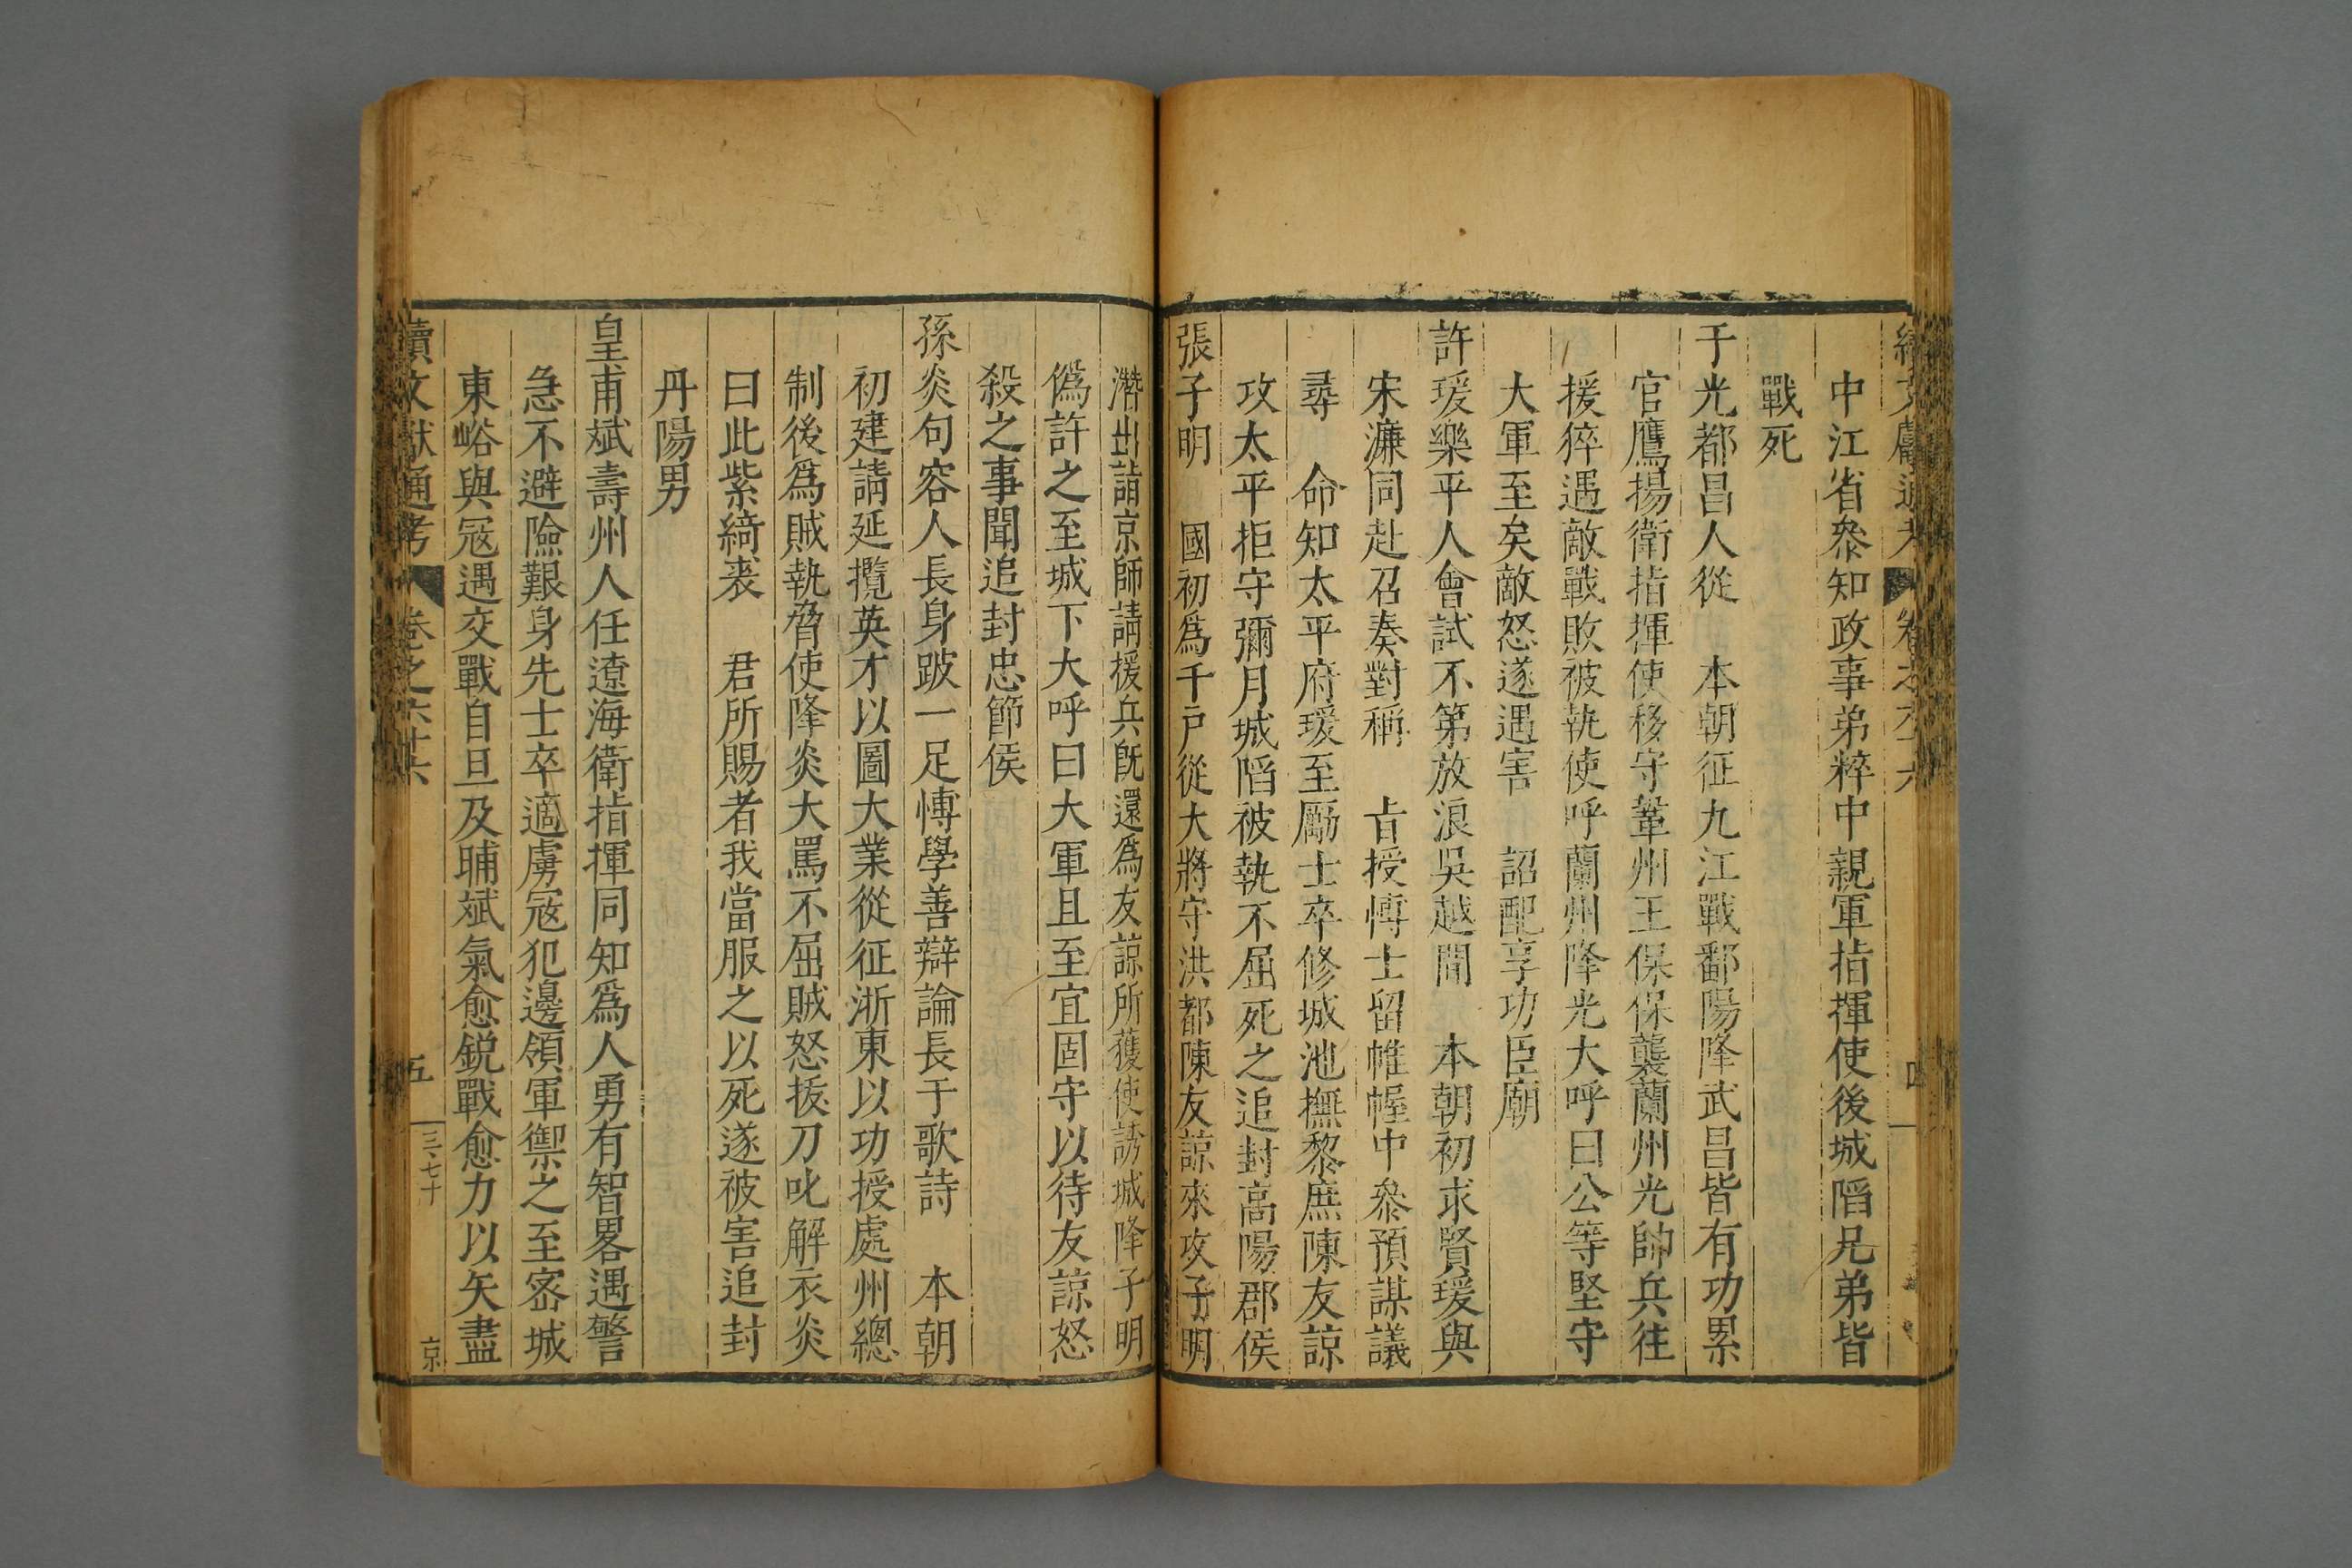 中江省叅知政事弟粹中親軍指揮使後城陷兄弟皆
戰死
于光都昌人從 本朝征九江戰鄱陽降武昌皆有功累
官鷹揚衛指揮使移守鞏州王保保襲蘭州光帥兵往
援猝遇敵戰敗被執使呼蘭州降光大呼曰公等堅守
大軍至矣敵怒遂遇害 詔配享功臣廟
許瑗樂平人會試不第放浪吳越間 本朝初求賢瑗與
宋濂同赴召奏對稱 旨授博士留帷幄中叅預謀議
尋 命知太平府瑗至勵士卒修城池撫黎庶陳友諒
攻太平拒守彌月城陷被執不屈死之追封高陽郡侯
張子明 國初為千戶從大將守洪都陳友諒來攻子明
潛出詣京師請援兵既還為友諒所獲使誘城降子明
偽許之至城下大呼曰大軍且至宜固守以待友諒怒
殺之事聞追封忠節侯
孫炎句容人長身跛一足博學善辯論長于歌詩 本朝
初建請延攬英才以圖大業從征浙東以功授處州總
制後為賊執脅使降炎大罵不屈賊怒拔刀叱解衣炎
曰此紫綺裘 君所賜者我當服之以死遂被害追封
丹陽男
皇甫斌壽州人任遼海衛指揮同知為人勇有智畧遇警
急不避險艱身先士卒適虜寇犯邊領軍禦之至密城
東峪與寇遇交戰自旦及晡斌氣愈銳戰愈力以矢盡
續文獻通考 卷之六十六 五 三七十 京